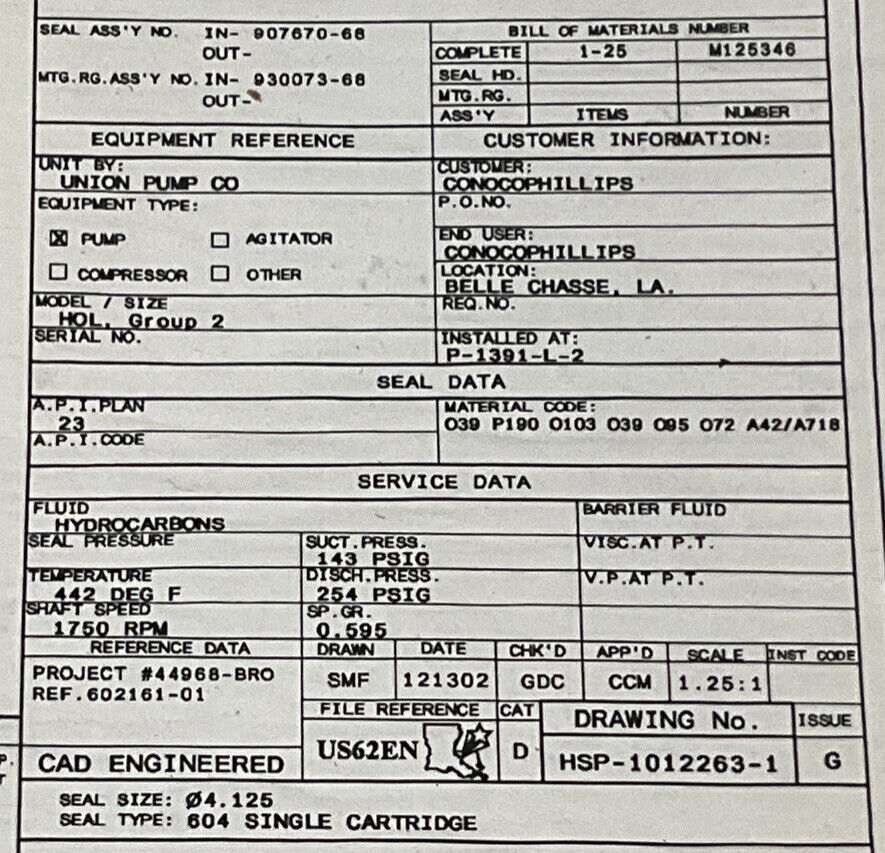 SEAL ASS'Y NO. IN- 907670-68
OUT-
MTG.RG.ASS'Y NO. IN- 930073-68
OUT-
BILL OF MATERIALS NUMBER
COMPLETE 1-25 M125346
SEAL HD.
MTG.RG.
ASS'Y ITEMS NUMBER
EQUIPMENT REFERENCE
CUSTOMER INFORMATION:
UNIT BY:
UNION PUMP CO
CUSTOMER:
CONOCOPHILLIPS
EQUIPMENT TYPE:
P.O.NO.
☒ PUMP ☐ AGITATOR
☐ COMPRESSOR ☐ OTHER
END USER:
CONOCOPHILLIPS
LOCATION:
BELLE CHASSE, LA.
MODEL / SIZE
HOL, Group 2
REQ.NO.
SERIAL NO.
INSTALLED AT:
P-1391-L-2
SEAL DATA
A.P.I.PLAN
23
A.P.I.CODE
MATERIAL CODE:
O39 P190 O103 O39 O95 O72 A42/A718
SERVICE DATA
FLUID
HYDROCARBONS
BARRIER FLUID
SEAL PRESSURE
SUCT.PRESS.
143 PSIG
VISC.AT P.T.
TEMPERATURE
442 DEG F
DISCH.PRESS.
254 PSIG
V.P.AT P.T.
SHAFT SPEED
1750 RPM
SP.GR.
0.595
REFERENCE DATA
PROJECT #44968-BRO
REF.602161-01
DRAWN DATE CHK'D APP'D SCALE INST CODE
SMF 121302 GDC CCM 1.25:1
FILE REFERENCE CAT
US62EN D
DRAWING No. ISSUE
HSP-1012263-1 G
CAD ENGINEERED
SEAL SIZE: Ø4.125
SEAL TYPE: 604 SINGLE CARTRIDGE